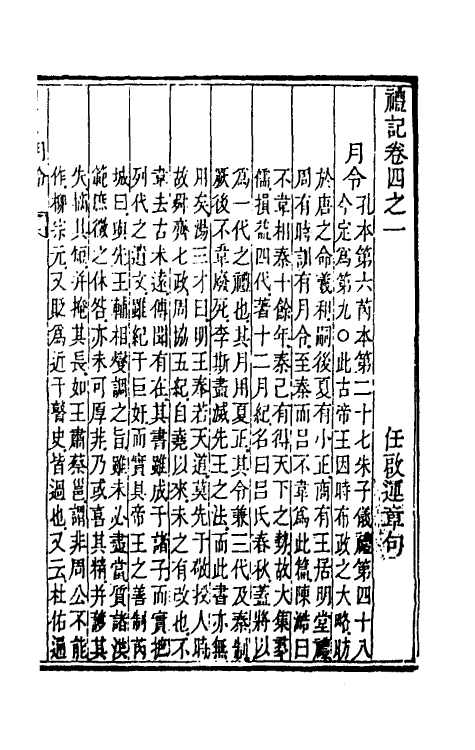 禮記卷四之一
任啟運章句
月令孔本第六芮本第二十七朱子儀禮第四十八
今定為第九○此古帝王因時布政之大略昉
於唐之命羲和嗣後夏有小正商有王居明堂禮
周有時訓有月令至秦而呂不韋為此篇陳澔曰
不韋相秦十餘年秦已有得天下之勢故大集羣
儒損益四代著十二月紀名曰呂氏春秋蓋將以
為一代之禮也其月用夏正其令兼三代及秦制
厥後不韋廢死李斯盡滅先王之法而此書亦無
用矣湯三才曰明王奉若天道莫先于敬授人時
故舜齊七政周協五紀自堯以來未之有改也不
韋去古未遠傳聞有在其書雖成于諸子而實把
列代之遺文雖紀于巨奸而實具帝王之善制芮
城曰與先王輔相燮調之旨雖未必盡當質諸洪
範庶徵之休咎亦未可厚非乃或喜其精并諺其
失恤其煩并掩其長如王肅蔡邕謂非周公不能
作柳宗元又貶為近于瞽史皆過也又云杜佑過